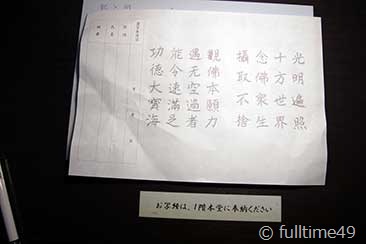 光明遍照
十方世界
念佛衆生
攝取不捨
觀佛本願力
遇无空過者
能令速滿足
功德大寶海
お写経は、1階本堂に奉納ください
© fulltime49